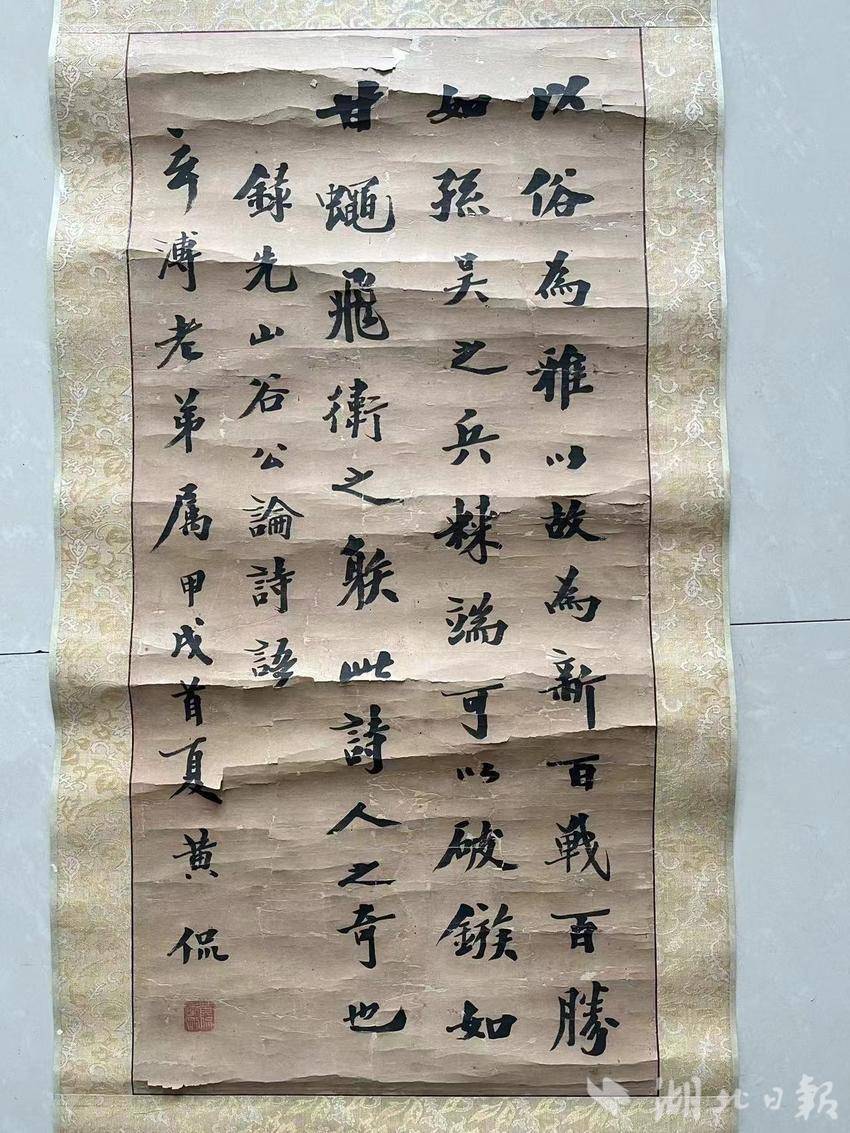 以俗為雅以故為新百戰百勝
如孫吴之兵棘端可以破鏃如
甘蠅飛衛之䠶此詩人之奇也
録先山谷公論詩語
辛溥老弟属甲戌首夏黄侃
湖北日報